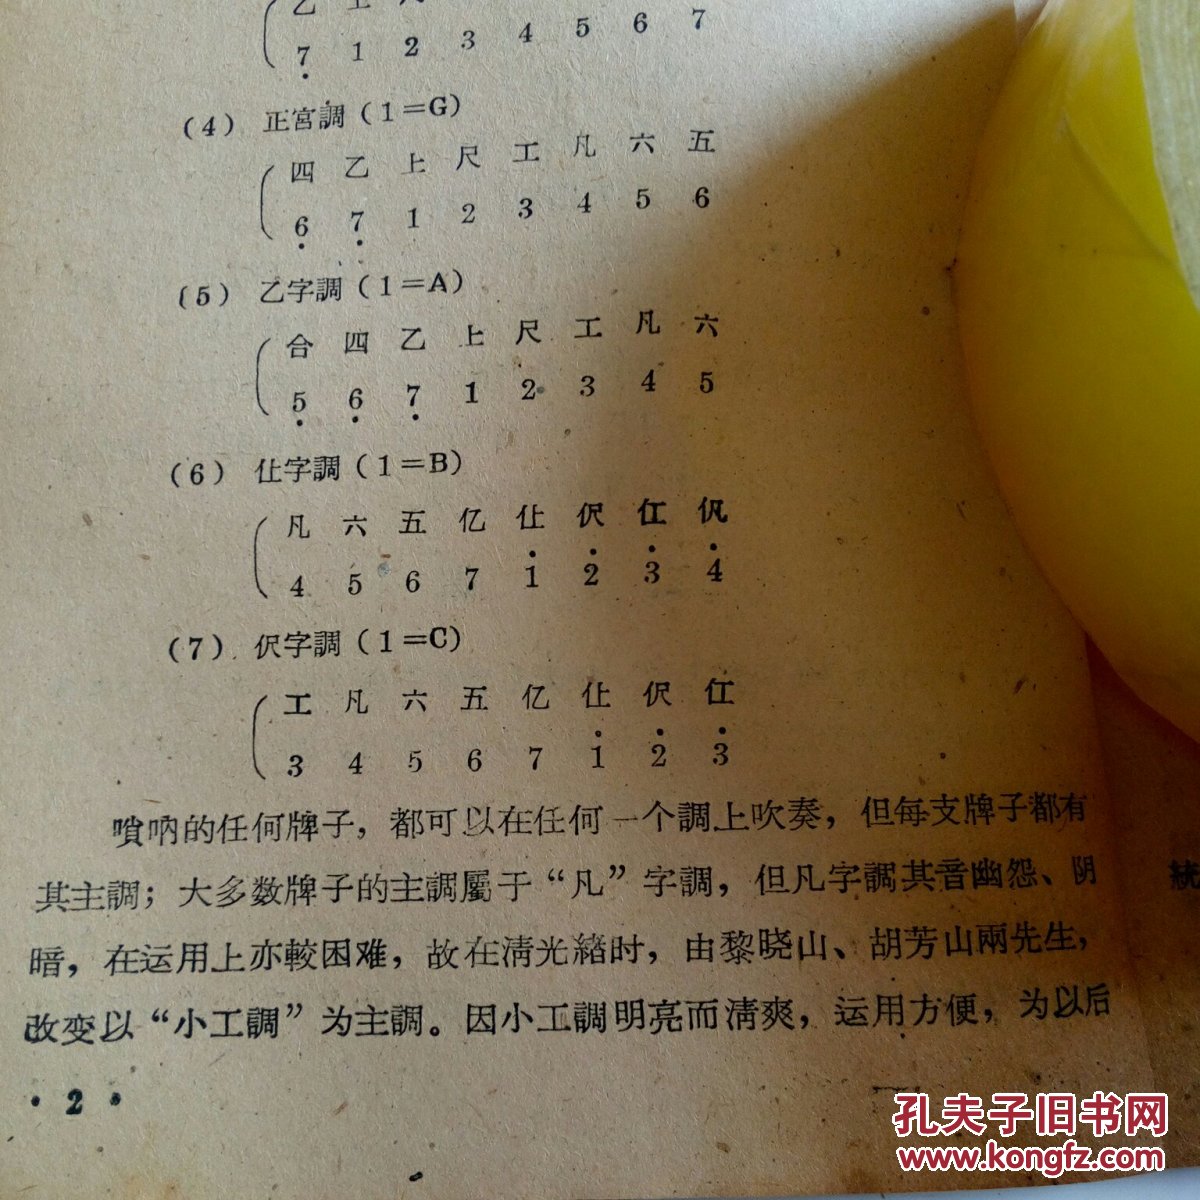 乙 上
7̣ 1 2 3 4 5 6 7
(4) 正宮調(1=G)
四 乙 上 尺 工 凡 六 五
6̣ 7̣ 1 2 3 4 5 6
(5) 乙字調(1=A)
合 四 乙 上 尺 工 凡 六
5̣ 6̣ 7̣ 1 2 3 4 5
(6) 仩字調(1=B)
凡 六 五 亿 仩 伬 仜 㐽
4 5 6 7 1̇ 2̇ 3̇ 4̇
(7) 伬字調(1=C)
工 凡 六 五 亿 仩 伬 仜
3 4 5 6 7 1̇ 2̇ 3̇
嗩吶的任何牌子，都可以在任何一个調上吹奏，但每支牌子都有
其主調；大多数牌子的主調屬于“凡”字調，但凡字調其音幽怨、阴
暗，在运用上亦較困难，故在淸光緒时，由黎晓山、胡芳山兩先生，
改变以“小工調”为主調。因小工調明亮而淸爽，运用方便，为以后
• 2 •
統
孔夫子旧书网
www.kongfz.com